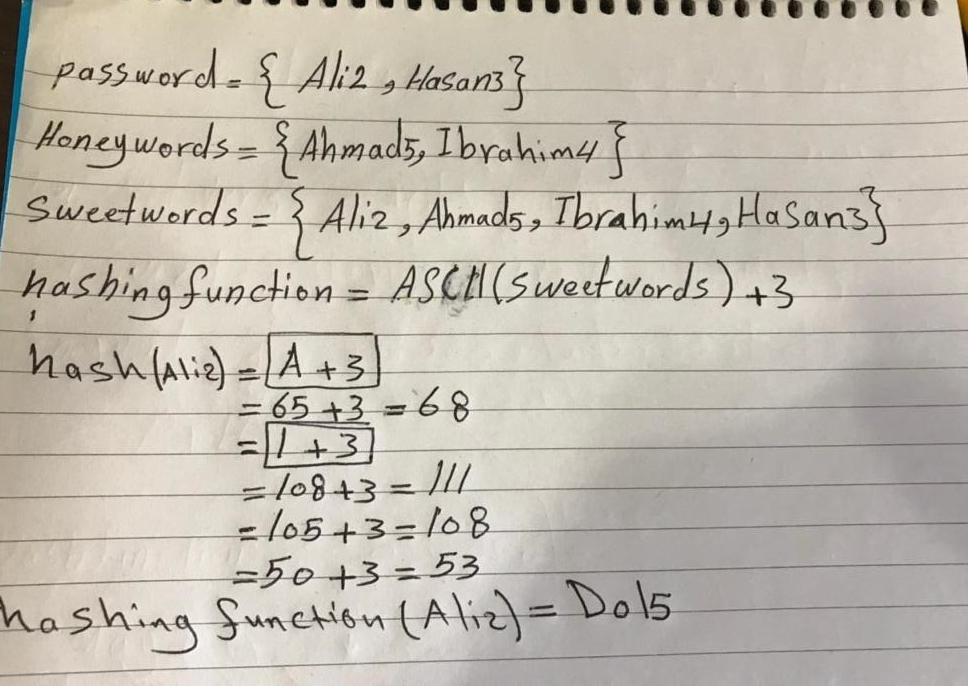 password = { Ali2, Hasan3}
Honeywords = {Ahmad5, Ibrahim4}
Sweetwords = { Ali2, Ahmad5, Ibrahim4, Hasan3}
hashing function = ASCII(Sweetwords) +3
hash(Ali2) = A +3
= 65 +3 = 68
= l +3
= 108 +3 = 111
= 105 +3 = 108
= 50 +3 = 53
hashing function (Ali2) = Dol5